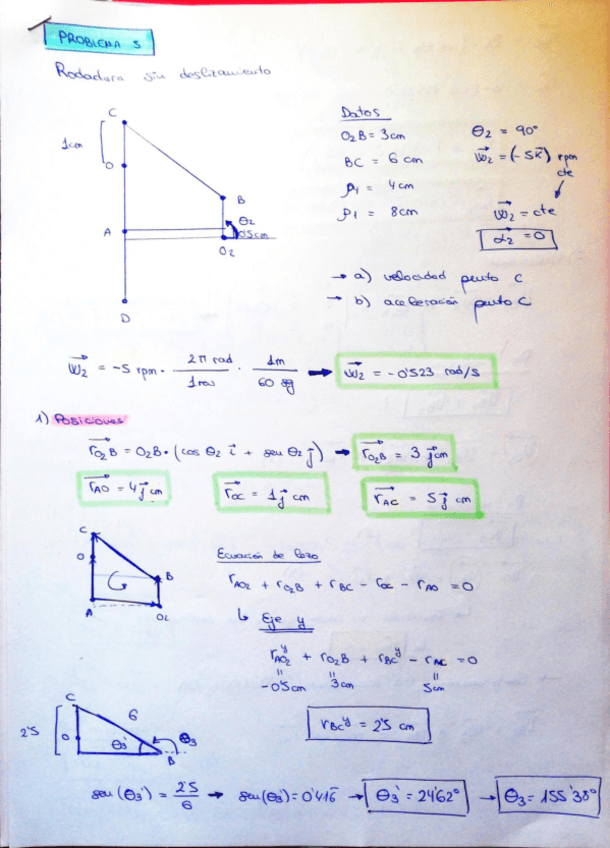 PROBLEMA 5
Rodadura sin deslizamiento
Datos
O2B = 3cm
θ2 = 90º
BC = 6 cm
w2 = (-5k) rpm cte
ρ1 = 4cm
w2 = cte
ρ1 = 8cm
α2 = 0
C
1cm
O
B
θ2
A
0'5cm
O2
D
→ a) velocidad punto C
→ b) aceleración punto C
w2 = -5 rpm · 2π rad / 1 rev · 1m / 60 sg → w2 = -0'523 rad/s
1) Posiciones
rO2B = O2B · (cos θ2 i + sen θ2 j) → rO2B = 3 j cm
rAO = 4j cm
rOC = 1j cm
rAC = 5j cm
C
O
B
A
O2
Ecuación de lazo
rAO2 + rO2B + rBC - rOC - rAO = 0
↳ Eje y
rAO2^y + rO2B + rBC^y - rAC = 0
-0'5cm 3cm 5cm
rBC^y = 2'5 cm
C
2'5
6
O
θ3'
θ3
B
sen(θ3') = 2'5 / 6 → sen(θ3') = 0'416 → θ3' = 24'62º → θ3 = 155'38º